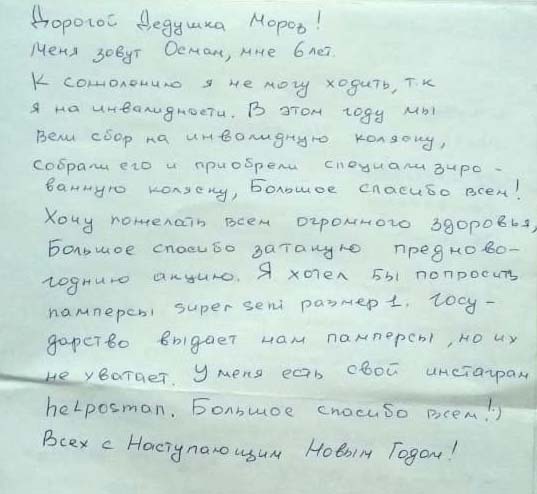 Дорогой Дедушка Мороз!
Меня зовут Осман, мне 6 лет.
К сожолению я не могу ходить, т.к
я на инвалидности. В этом году мы
вели сбор на инвалидную коляску,
собрали его и приобрели специализиро-
ванную коляску, Большое спасибо всем!
Хочу пожелать всем огромного здоровья,
Большое спасибо затакую предново-
годнию акцию. Я хотел бы попросить
памперсы super seni размер 1. Госу-
дарство выдает нам памперсы, но их
не хватает. У меня есть свой инстаграм
helposman. Большое спасибо всем!:)
Всех с Наступающим Новым Годом!